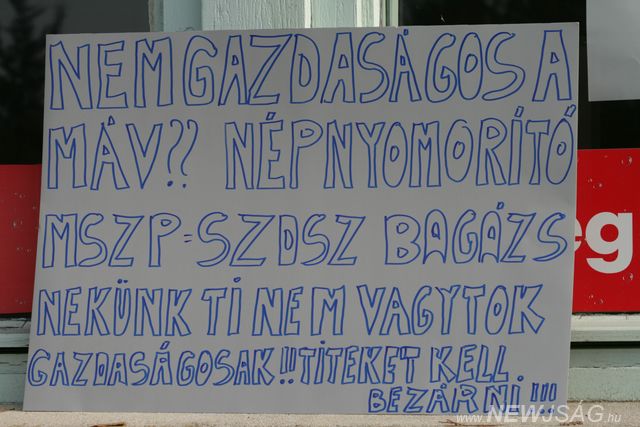 NEM GAZDASÁGOS A
MÁV?? NÉPNYOMORÍTÓ
MSZP=SZDSZ BAGÁZS
NEKÜNK TI NEM VAGYTOK
GAZDASÁGOSAK!!! TITEKET KELL.
BEZÁRNI!!!
eg
www.NEWJSÁG.hu